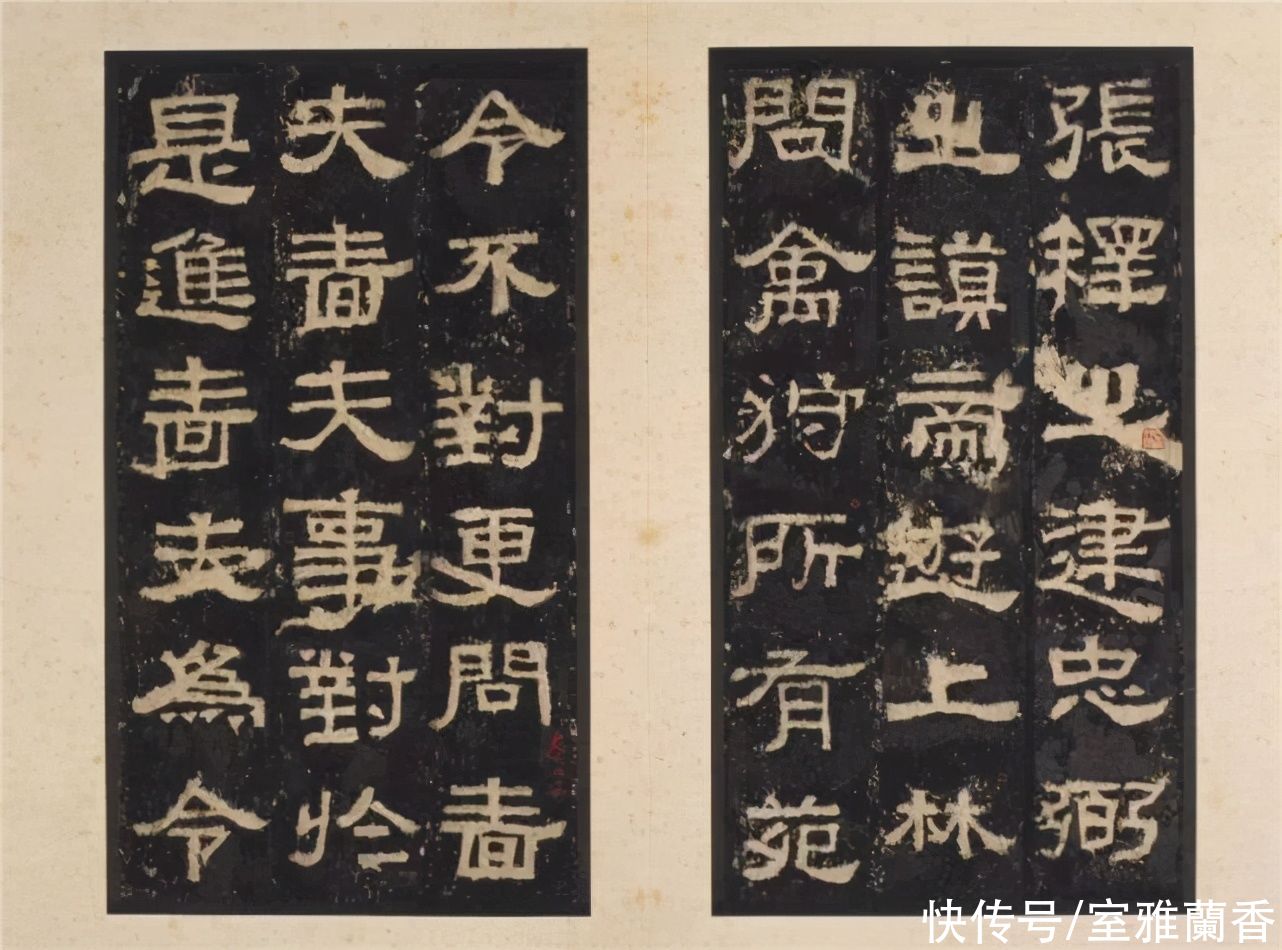 張釋之建忠弼
之謨帝遊上林
問禽狩所有苑
令不對更問嗇
夫嗇夫事對於
是進嗇夫為令
快传号/室雅蘭香